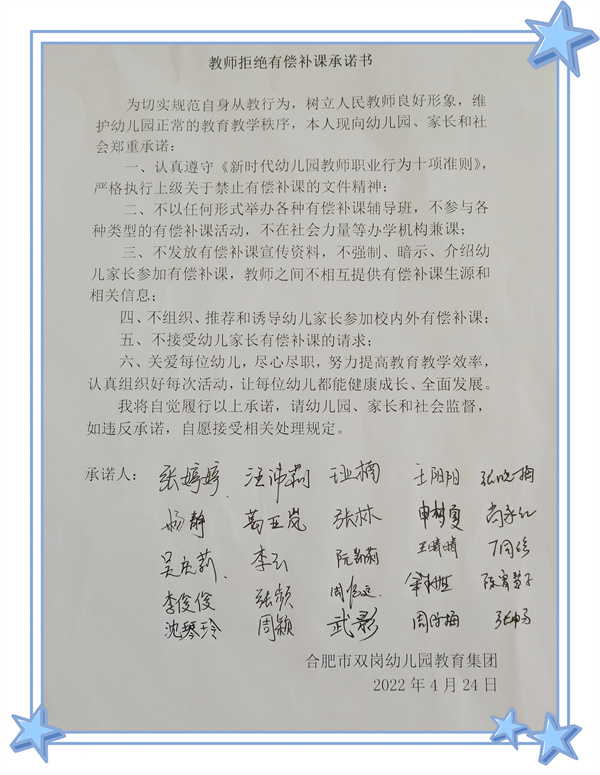 教师拒绝有偿补课承诺书
为切实规范自身从教行为，树立人民教师良好形象，维
护幼儿园正常的教育教学秩序，本人现向幼儿园、家长和社
会郑重承诺：
一、认真遵守《新时代幼儿园教师职业行为十项准则》，
严格执行上级关于禁止有偿补课的文件精神；
二、不以任何形式举办各种有偿补课辅导班，不参与各
种类型的有偿补课活动，不在社会力量等办学机构兼课；
三、不发放有偿补课宣传资料，不强制、暗示、介绍幼
儿家长参加有偿补课，教师之间不相互提供有偿补课生源和
相关信息；
四、不组织、推荐和诱导幼儿家长参加校内外有偿补课；
五、不接受幼儿家长有偿补课的请求；
六、关爱每位幼儿，尽心尽职，努力提高教育教学效率，
认真组织好每次活动，让每位幼儿都能健康成长、全面发展。
我将自觉履行以上承诺，请幼儿园、家长和社会监督，
如违反承诺，自愿接受相关处理规定。
承诺人：张婷婷 汪沛莉 王阳阳 张晓梅
杨静 葛亚岚 张林
李云 王晴晴
李俊俊 张颖
沈琴玲 周颖 武影
合肥市双岗幼儿园教育集团
2022年4月24日